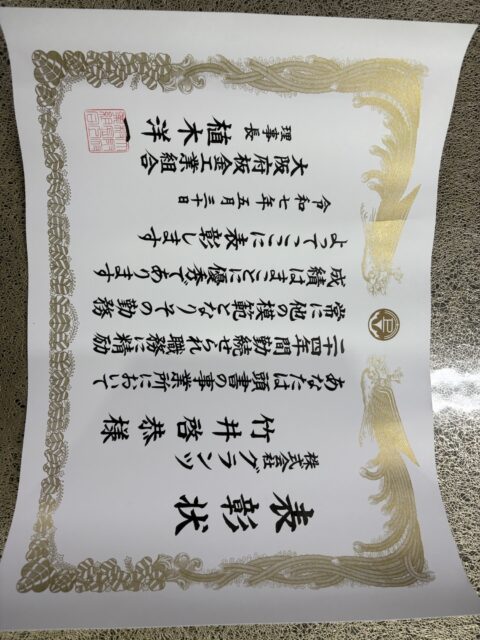 表彰状
株式会社グランツ
竹井啓恭様
あなたは頭書の事業所において
二十四年間勤続せられ職務に精励
常に他の模範となりその勤務
成績はまことに優秀であります
よってここに表彰します
令和七年五月三十日
大阪府板金工業組合
理事長 植木洋一